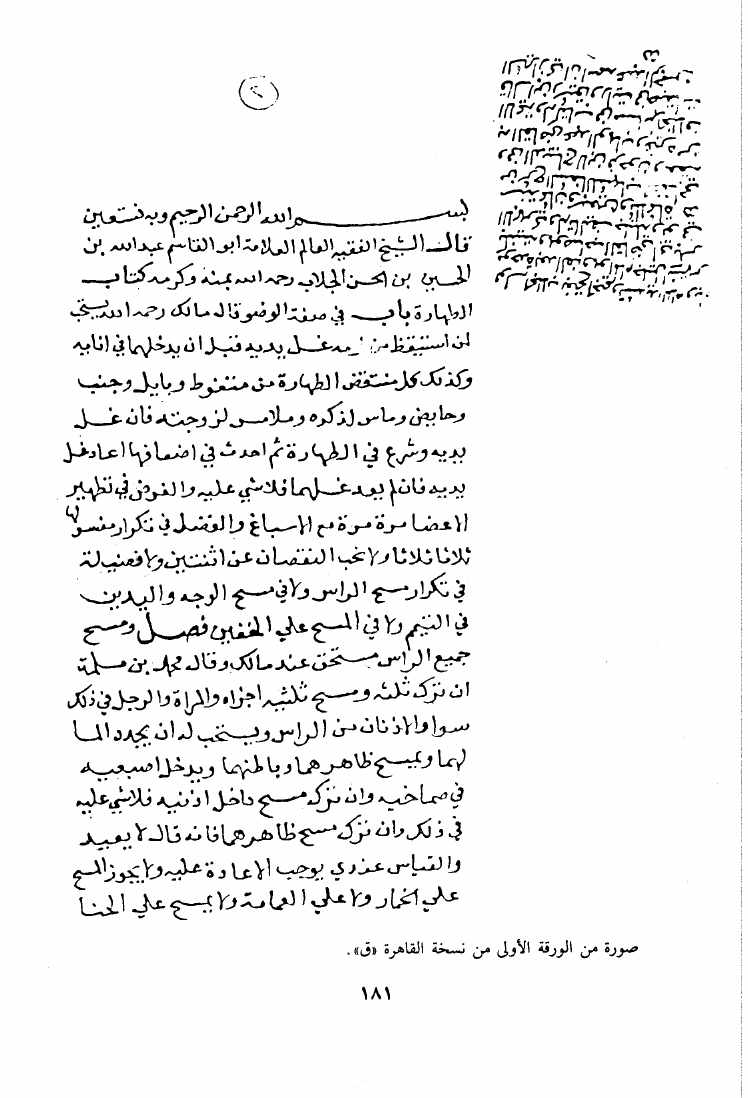 ٢
بسم الله الرحمن الرحيم وبه نستعين
قال الشيخ الفقيه العالم العلامة ابو القاسم عبد الله بن
الحسين بن الحسن الجلاب رحمه الله بمنه وكرمه كتاب
الطهارة باب في صفة الوضو قال مالك رحمه الله يستحب
لمن استيقظ من نومه غسل يديه قبل ان يدخلهما في انايه
وكذلك كل منتقض الطهارة من متغوط وبايل وجنب
وحايض وماس لذكره وملامس لزوجته فان غسل
يديه وشرع في الطهارة ثم احدث في اضعافها اعاد غسل
يديه فان لم يعد غسلهما فلا شي عليه والفرض في تطهير
الاعضا مرة مرة مع الاسباغ والفضل في تكرار مغسولها
ثلاثا ثلاثا ولا يحب النقصان عن اثنتين ولا فضيلة
في تكرار مسح الراس ولا في مسح الوجه واليدين
في التيمم ولا في المسح علي الخفين فصل ومسح
جميع الراس مستحق عند مالك وقال محمد بن مسلمة
ان ترك ثلثه ومسح ثلثيه اجزاه والمراة والرجل في ذلك
سوا والاذنان من الراس ويستحب له ان يجدد الما
لهما ويمسح ظاهرهما وباطنهما ويدخل اصبعيه
في صماخيه وان ترك مسح داخل اذنيه فلا شي عليه
في ذلك وان ترك مسح ظاهرهما فانه قال لا يعيد
والقياس عندي يوجب الاعادة عليه ولا يجوز المسح
علي الخمار ولا علي العمامة ولا يمسح علي الحنا
صورة من الورقة الأولى من نسخة القاهرة «ق».
١٨١